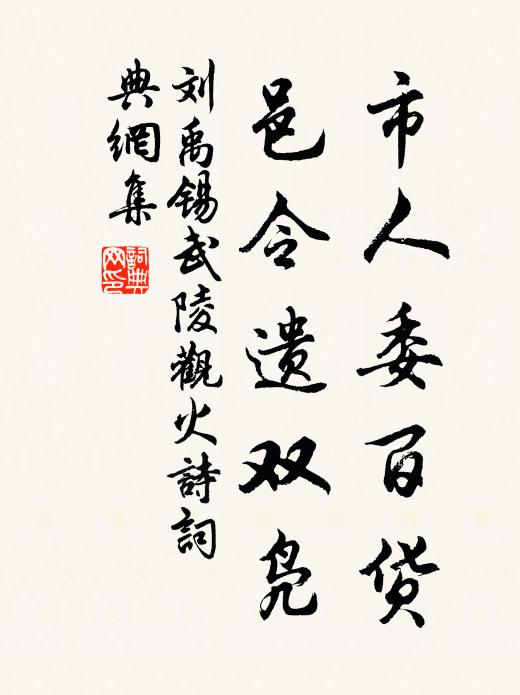 市人委百货
邑令遗双凫
刘禹锡武陵觀火詩詞
典網集
詞典網印